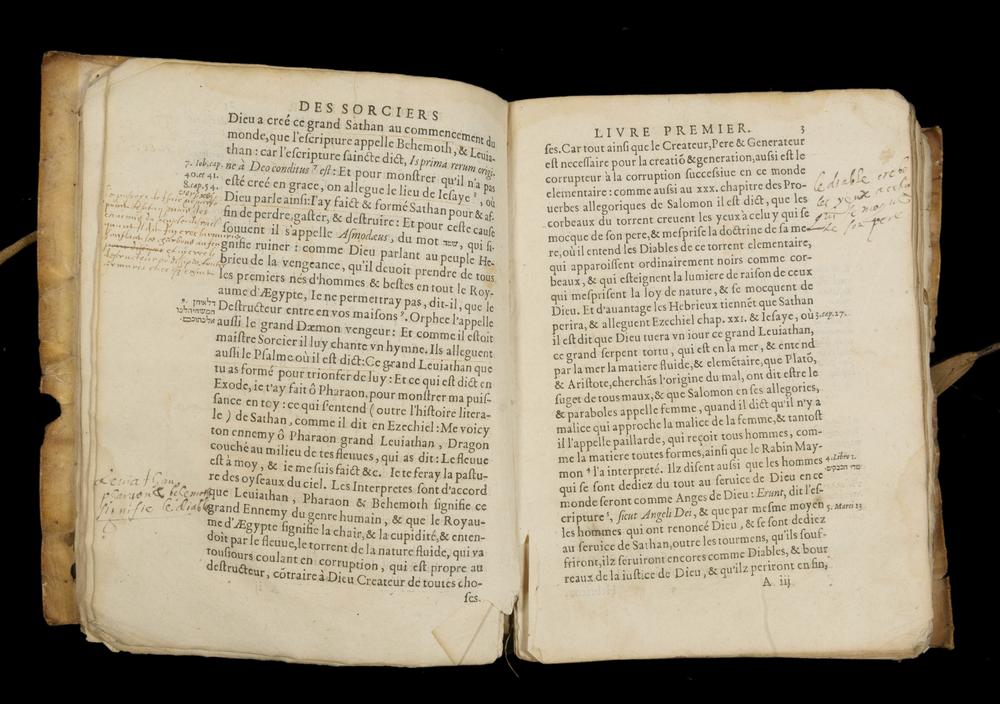 DES SORCIERS
Dieu a creé ce grand Sathan au commencement du
monde, que l'eſcripture appelle Behemoth, & Leuia-
than : car l'eſcripture ſaincte dict, Is prima rerum origi-
ne à Deo conditus 7 eſt : Et pour monſtrer qu'il n'a pas
eſté creé en grace, on allegue le lieu de Ieſaye 8, où
Dieu parle ainſi: I'ay faict & formé Sathan pour & af-
fin de perdre, gaſter, & deſtruire : Et pour ceſte cauſe
ſouuent il s'appelle Aſmodæus, du mot שמד, qui ſi-
gnifie ruiner : comme Dieu parlant au peuple He-
brieu de la vengeance, qu'il deuoit prendre de tous
les premiers nés d'hommes & beſtes en tout le Roy-
aume d'Ægypte, Ie ne permettray pas, dit-il, que le
Deſtructeur entre en vos maiſons 9. Orphee l'appelle
auſſi le grand Dæmon vengeur : Et comme il eſtoit
maiſtre Sorcier il luy chante vn hymne. Ils alleguent
auſſi le Pſalme où il eſt dict: Ce grand Leuiathan que
tu as formé pour trionfer de luy : Et ce qui eſt dict en
Exode, ie t'ay fait ô Pharaon, pour monſtrer ma puiſ-
ſance en toy : ce qui s'entend ( outre l'hiſtoire litera-
le ) de Sathan, comme il dit en Ezechiel : Me voicy
ton ennemy ô Pharaon grand Leuiathan, Dragon
couché au milieu de tes fleuues, qui as dit : Le fleuue
eſt à moy, & ie me ſuis faict &c. Ie te feray la paſtu-
re des oyſeaux du ciel. Les Interpretes ſont d'accord
que Leuiathan, Pharaon & Behemoth ſignifie ce
grand Ennemy du genre humain, & que le Royau-
me d'Ægypte ſignifie la chair, & la cupidité, & enten-
doit par le fleuue, le torrent de la nature fluide, qui va
touſiours coulant en corruption, qui eſt propre au
deſtructeur, cōtraire à Dieu Createur de toutes cho-
ſes.
7. Iob. cap.
40. et 41.
8. cap. 54.
Leuiathan
pharaon & behemoth
signifie le diable
LIVRE PREMIER. 3
ſes. Car tout ainſi que le Createur, Pere & Generateur
eſt neceſſaire pour la creatiō & generation, auſſi eſt le
corrupteur à la corruption ſucceſſiue en ce monde
elementaire : comme auſſi au xxx. chapitre des Pro-
uerbes allegoriques de Salomon il eſt dict, que les
corbeaux du torrent creuent les yeux à celuy qui ſe
mocque de ſon pere, & meſpriſe la doctrine de ſa me-
re, où il entend les Diables de ce torrent elementaire,
qui apparoiſſent ordinairement noirs comme cor-
beaux, & qui eſteignent la lumiere de raiſon de ceux
qui meſpriſent la loy de nature, & ſe mocquent de
Dieu. Et d'auantage les Hebrieux tiennēt que Sathan
perira, & alleguent Ezechiel chap. xxi. & Ieſaye, où
il eſt dit que Dieu tuera vn iour ce grand Leuiathan,
ce grand ſerpent tortu, qui eſt en la mer, & entend
par la mer la matiere fluide, & elemētaire, que Platō,
& Ariſtote, cherchās l'origine du mal, ont dit eſtre le
ſuget de tous maux, & que Salomon en ſes allegories,
& paraboles appelle femme, quand il dict qu'il n'y a
malice qui approche la malice de la femme, & tantoſt
il l'appelle paillarde, qui reçoit tous hommes, com-
me la matiere toutes formes, ainſi que le Rabin May-
mon 4 l'a interpreté. Ilz diſent auſſi que les hommes
qui ſe ſont dediez du tout au ſeruice de Dieu en ce
monde ſeront comme Anges de Dieu : Erunt, dit l'eſ-
cripture 5, ſicut Angeli Dei, & que par meſme moyen
les hommes qui ont renoncé Dieu, & ſe ſont dediez
au ſeruice de Sathan, outre les tourmens, qu'ils ſouf-
friront, ilz ſeruiront encores comme Diables, & bour
reaux de la iuſtice de Dieu, & qu'ilz periront en fin,
A iij
le diable creve
les yeux a celuy
qui se mocque
de son pere
3. cap. 27.
4. Libro 1.
5. Marci 12